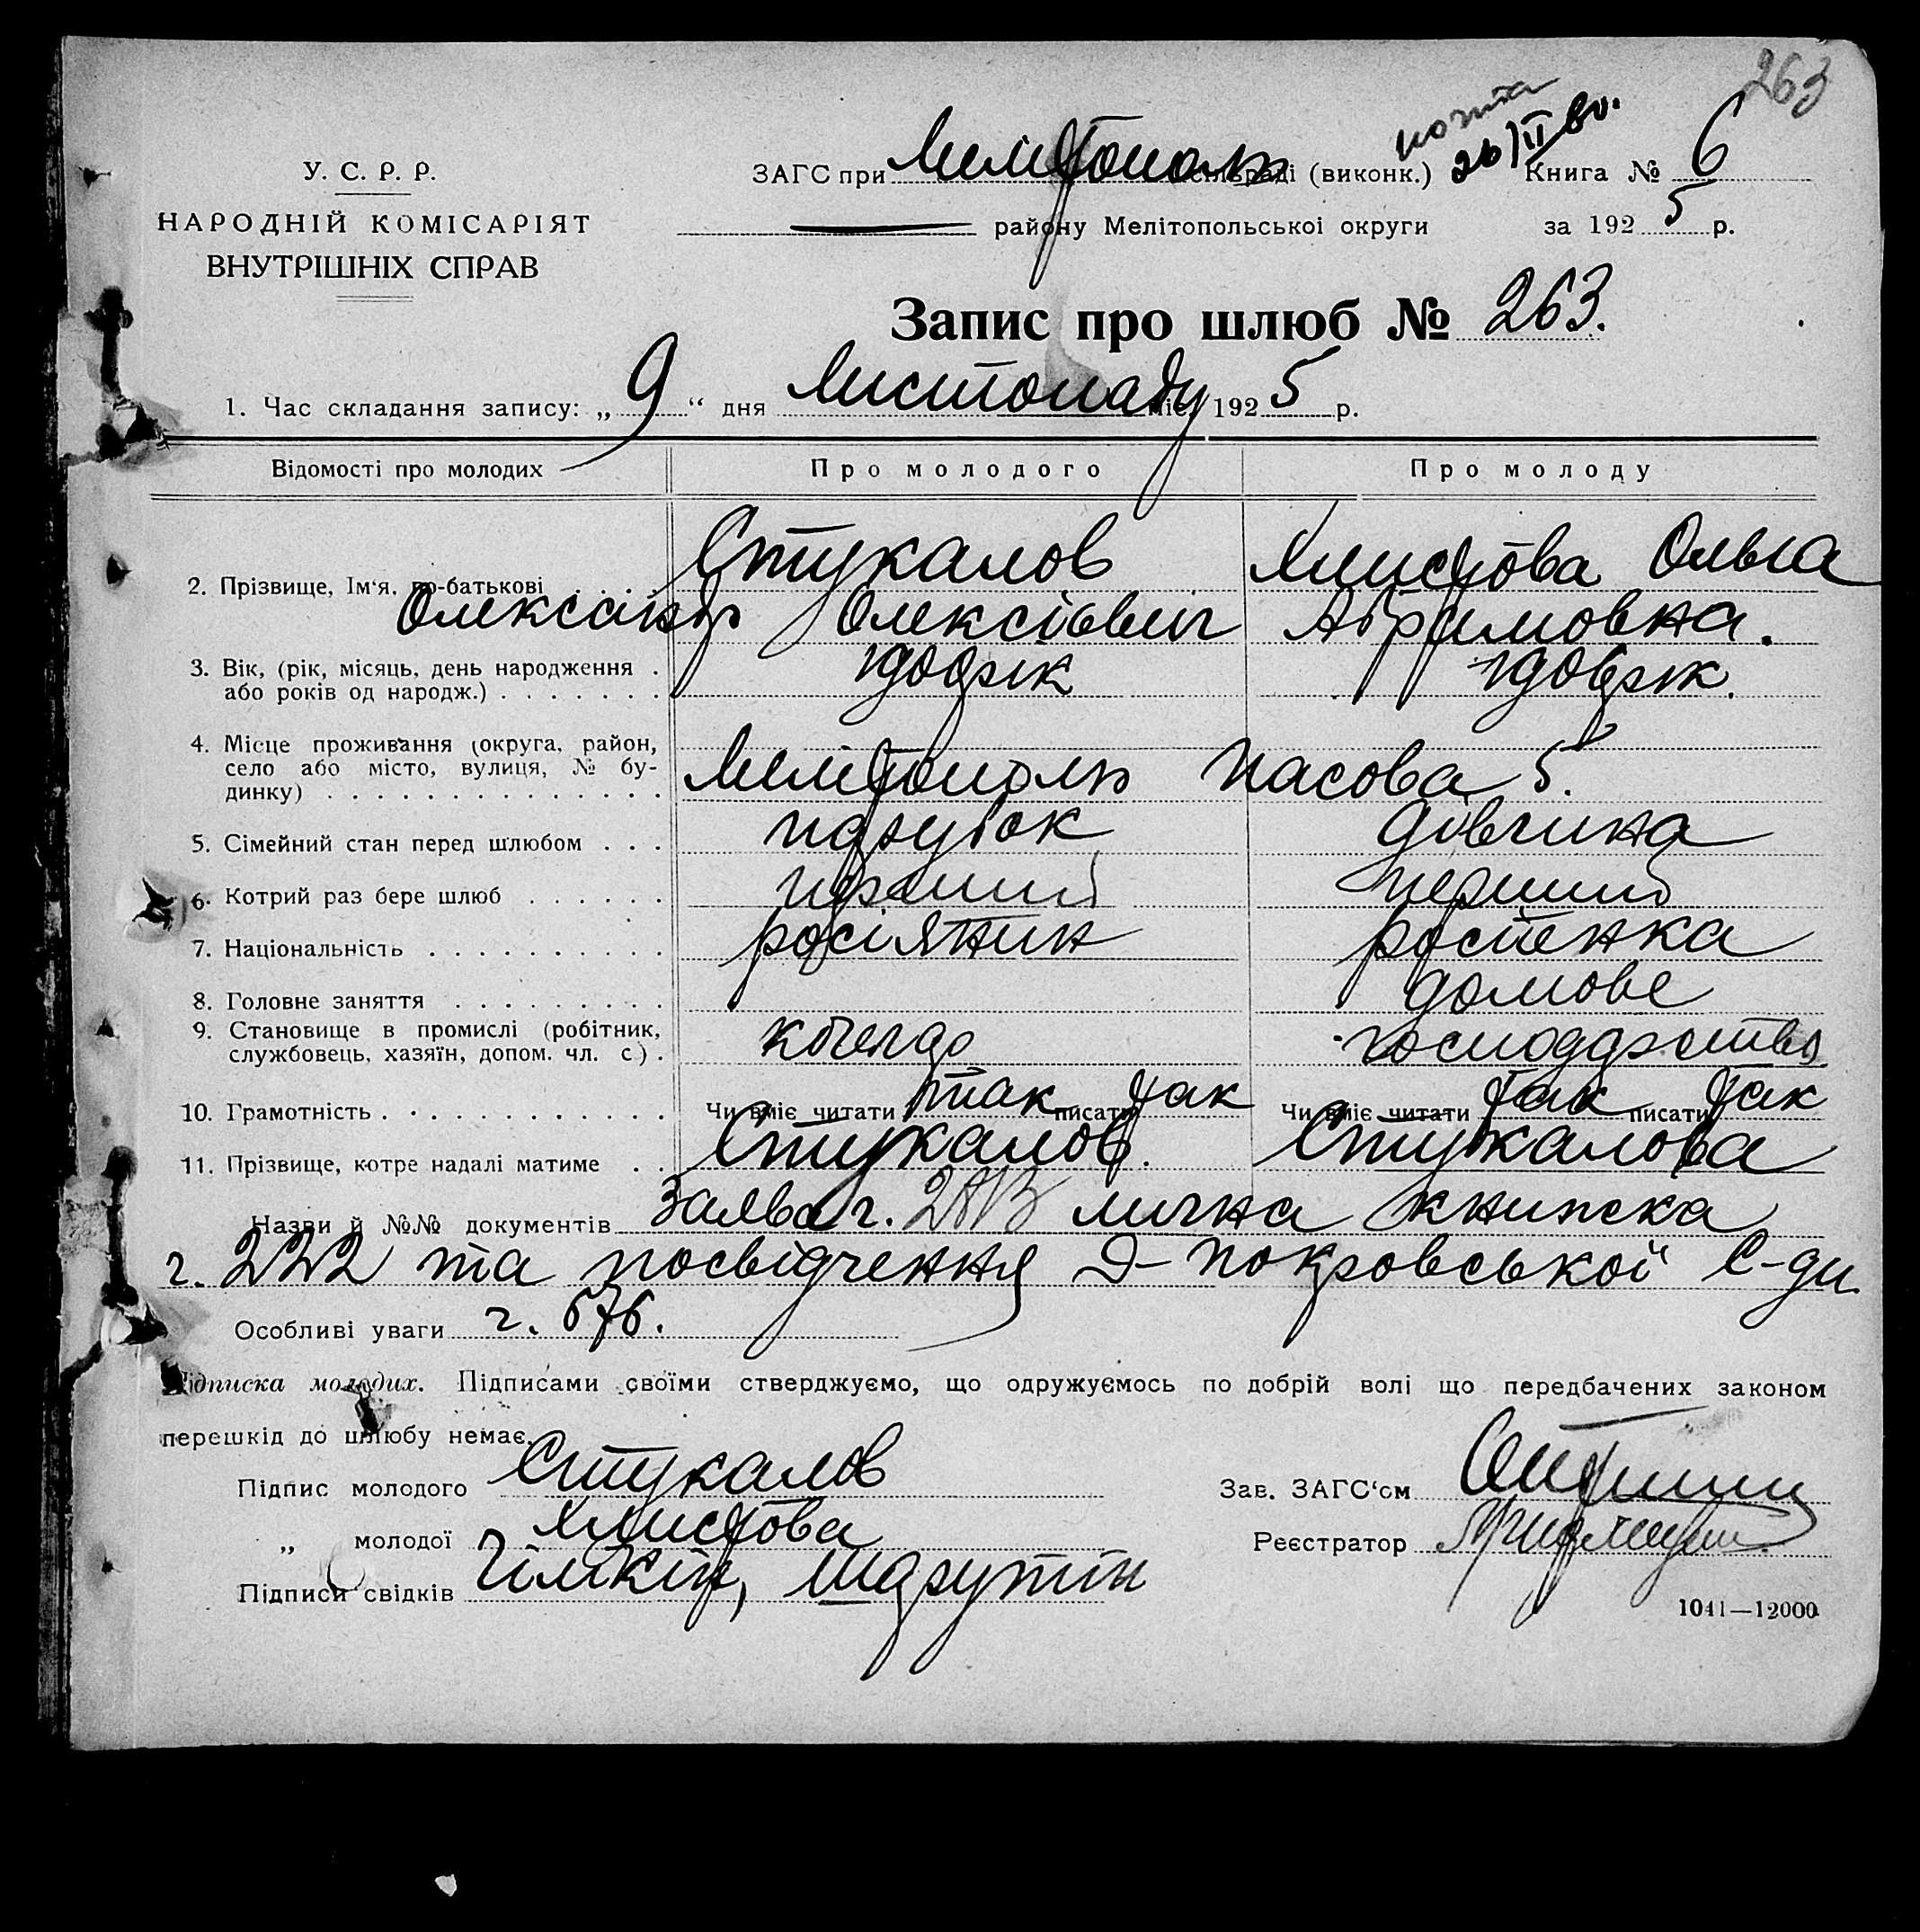 263
копія
26/II 60.
У. С. Р. Р.
НАРОДНІЙ КОМІСАРІЯТ
ВНУТРІШНІХ СПРАВ
ЗАГС при Мелітополь сільраді (виконк.) Книга № 6
району Мелітопольської округи за 1925 р.
Запис про шлюб № 263.
1. Час складання запису: „9“ дня Листопаду міс. 1925 р.
Відомості про молодих Про молодого Про молоду
2. Прізвище, Ім‘я, по-батькові Стукалов Олександр Олексіевич Ольга Абрамовна.
3. Вік, (рік, місяць, день народження або років од народж.)
4. Місце проживання (округа, район, село або місто, вулиця, № будинку) Мелітополь 5.
5. Сімейний стан перед шлюбом парубок дівчина
6. Котрий раз бере шлюб перший перший
7. Національність росіянин
8. Головне заняття домове
9. Становище в промислі (робітник, службовець, хазяїн, допом. чл. с.) господарство
10. Грамотність Чи вміє читати так писати так Чи вміє читати так писати так
11. Прізвище, котре надалі матиме Стукалов. Стукалова
Назви й №№ документів Заява ч. лична книжка
ч. 222 та посвідчення Д-Покровської С-ди
Особливі уваги ч. 676.
Підписка молодих. Підписами своїми стверджуємо, що одружуємось по добрій волі що передбачених законом
перешкід до шлюбу немає.
Підпис молодого Стукалов Зав. ЗАГС‘ом
„ молодої Реєстратор
Підписи свідків
1041—12000